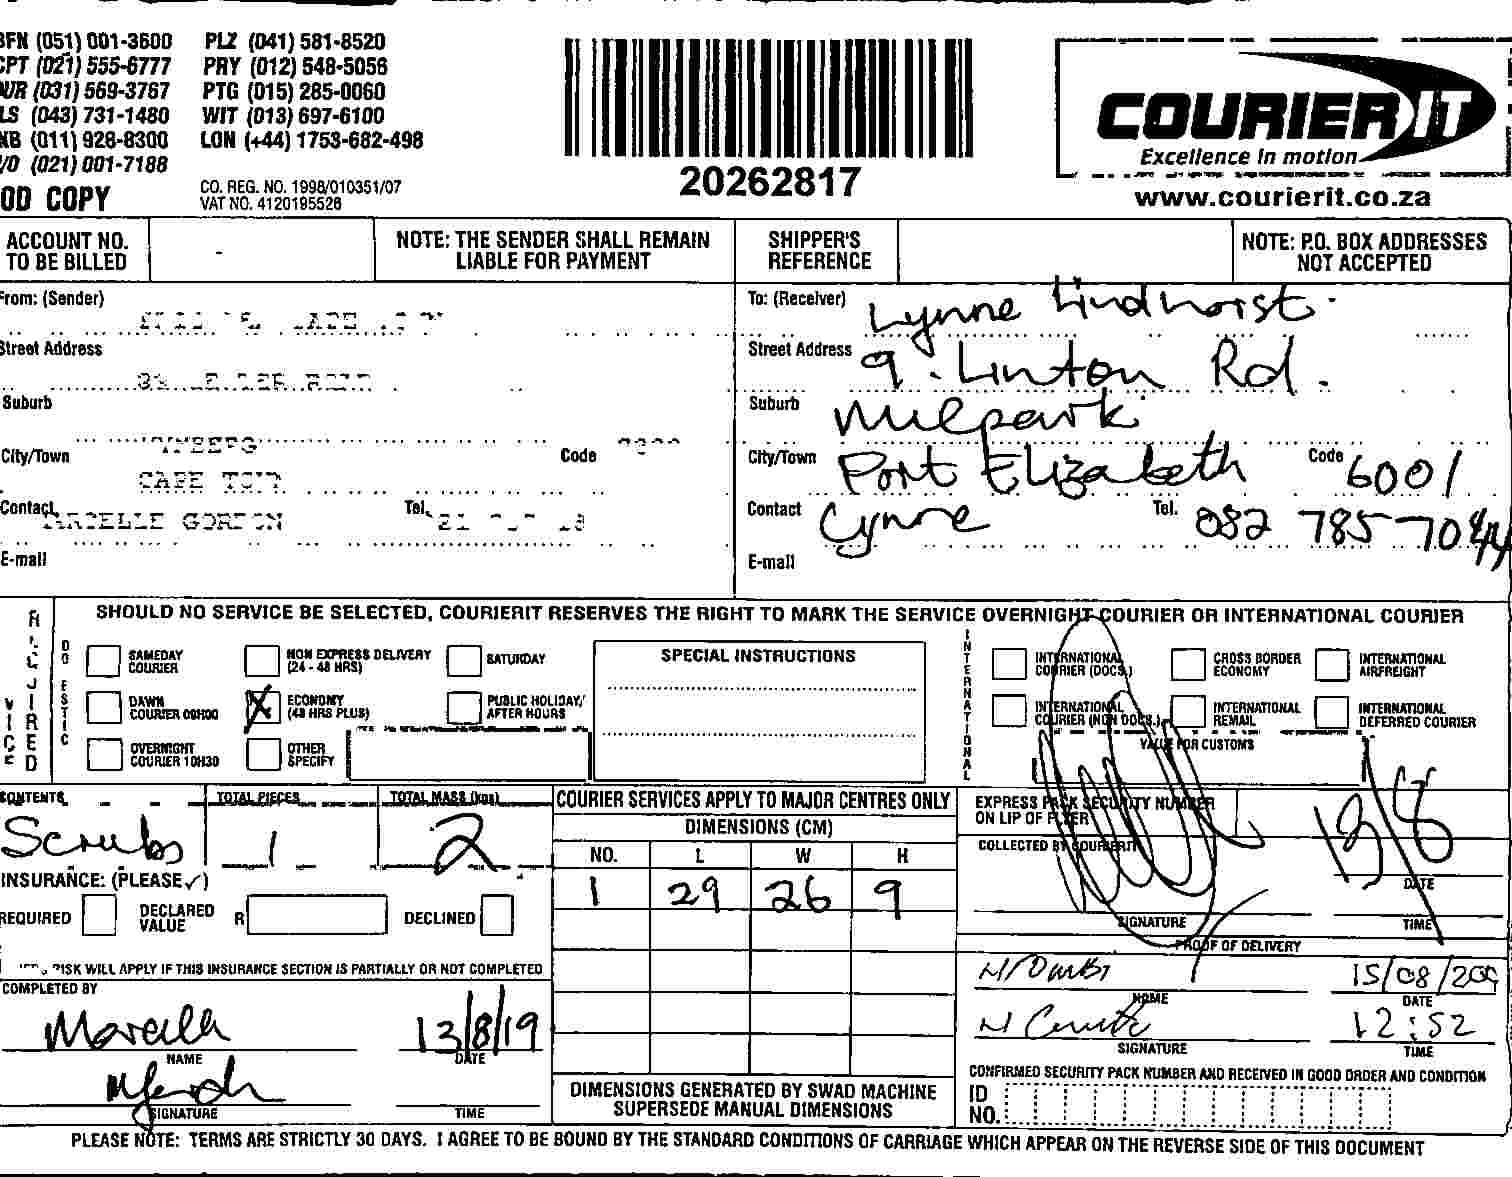 BFN (051) 001-3600 PLZ (041) 581-8520
CPT (021) 555-6777 PRY (012) 548-5056
DUR (031) 569-3767 PTG (015) 285-0060
LS (043) 731-1480 WIT (013) 697-6100
NB (011) 928-8300 LON (+44) 1753-682-498
/D (021) 001-7188
OD COPY
CO. REG. NO. 1998/010351/07
VAT NO. 4120195526
20262817
COURIER IT
Excellence in motion
www.courierit.co.za
ACCOUNT NO. TO BE BILLED -
NOTE: THE SENDER SHALL REMAIN LIABLE FOR PAYMENT
SHIPPER'S REFERENCE
NOTE: P.O. BOX ADDRESSES NOT ACCEPTED
From: (Sender)
Street Address
Suburb
City/Town CAPE TOWN
Code
Contact MARCELLE GORDON
Tel.
E-mail
To: (Receiver) Lynne Lindhorst
Street Address 9. Linton Rd.
Suburb Milpark
City/Town Port Elizabeth Code 6001
Contact Lynne Tel. 082 785 7044
E-mail
SHOULD NO SERVICE BE SELECTED, COURIERIT RESERVES THE RIGHT TO MARK THE SERVICE OVERNIGHT COURIER OR INTERNATIONAL COURIER
SAMEDAY COURIER
NON EXPRESS DELIVERY (24 - 48 HRS)
SATURDAY
DAWN COURIER 09H00
X ECONOMY (48 HRS PLUS)
PUBLIC HOLIDAY/ AFTER HOURS
OVERNIGHT COURIER 10H30
OTHER SPECIFY
SPECIAL INSTRUCTIONS
INTERNATIONAL
INTERNATIONAL COURIER (DOCS.)
CROSS BORDER ECONOMY
INTERNATIONAL AIRFREIGHT
INTERNATIONAL COURIER (NON DOCS.)
INTERNATIONAL REMAIL
INTERNATIONAL DEFERRED COURIER
VALUE FOR CUSTOMS
CONTENTS Scrubs
TOTAL PIECES 1
TOTAL MASS (kgs) 2
INSURANCE: (PLEASE ✓)
REQUIRED
DECLARED VALUE R
DECLINED
RISK WILL APPLY IF THIS INSURANCE SECTION IS PARTIALLY OR NOT COMPLETED
COMPLETED BY
NAME
13/8/19
DATE
SIGNATURE
TIME
COURIER SERVICES APPLY TO MAJOR CENTRES ONLY
DIMENSIONS (CM)
NO. L W H
1 29 26 9
DIMENSIONS GENERATED BY SWAD MACHINE SUPERSEDE MANUAL DIMENSIONS
EXPRESS PACK SECURITY NUMBER ON LIP OF FLYER
COLLECTED BY COURIERIT
13/8
DATE
SIGNATURE
TIME
PROOF OF DELIVERY
NAME
15/08/20
DATE
SIGNATURE
12:52
TIME
CONFIRMED SECURITY PACK NUMBER AND RECEIVED IN GOOD ORDER AND CONDITION
ID NO.
PLEASE NOTE: TERMS ARE STRICTLY 30 DAYS. I AGREE TO BE BOUND BY THE STANDARD CONDITIONS OF CARRIAGE WHICH APPEAR ON THE REVERSE SIDE OF THIS DOCUMENT